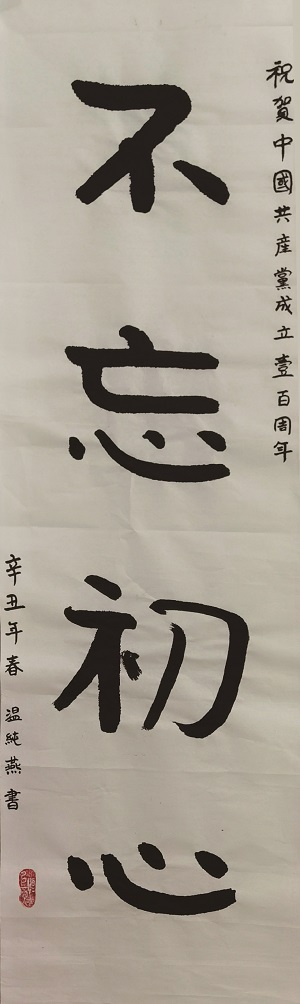 祝賀中國共產黨成立壹百周年
不忘初心
辛丑年春 温純燕書